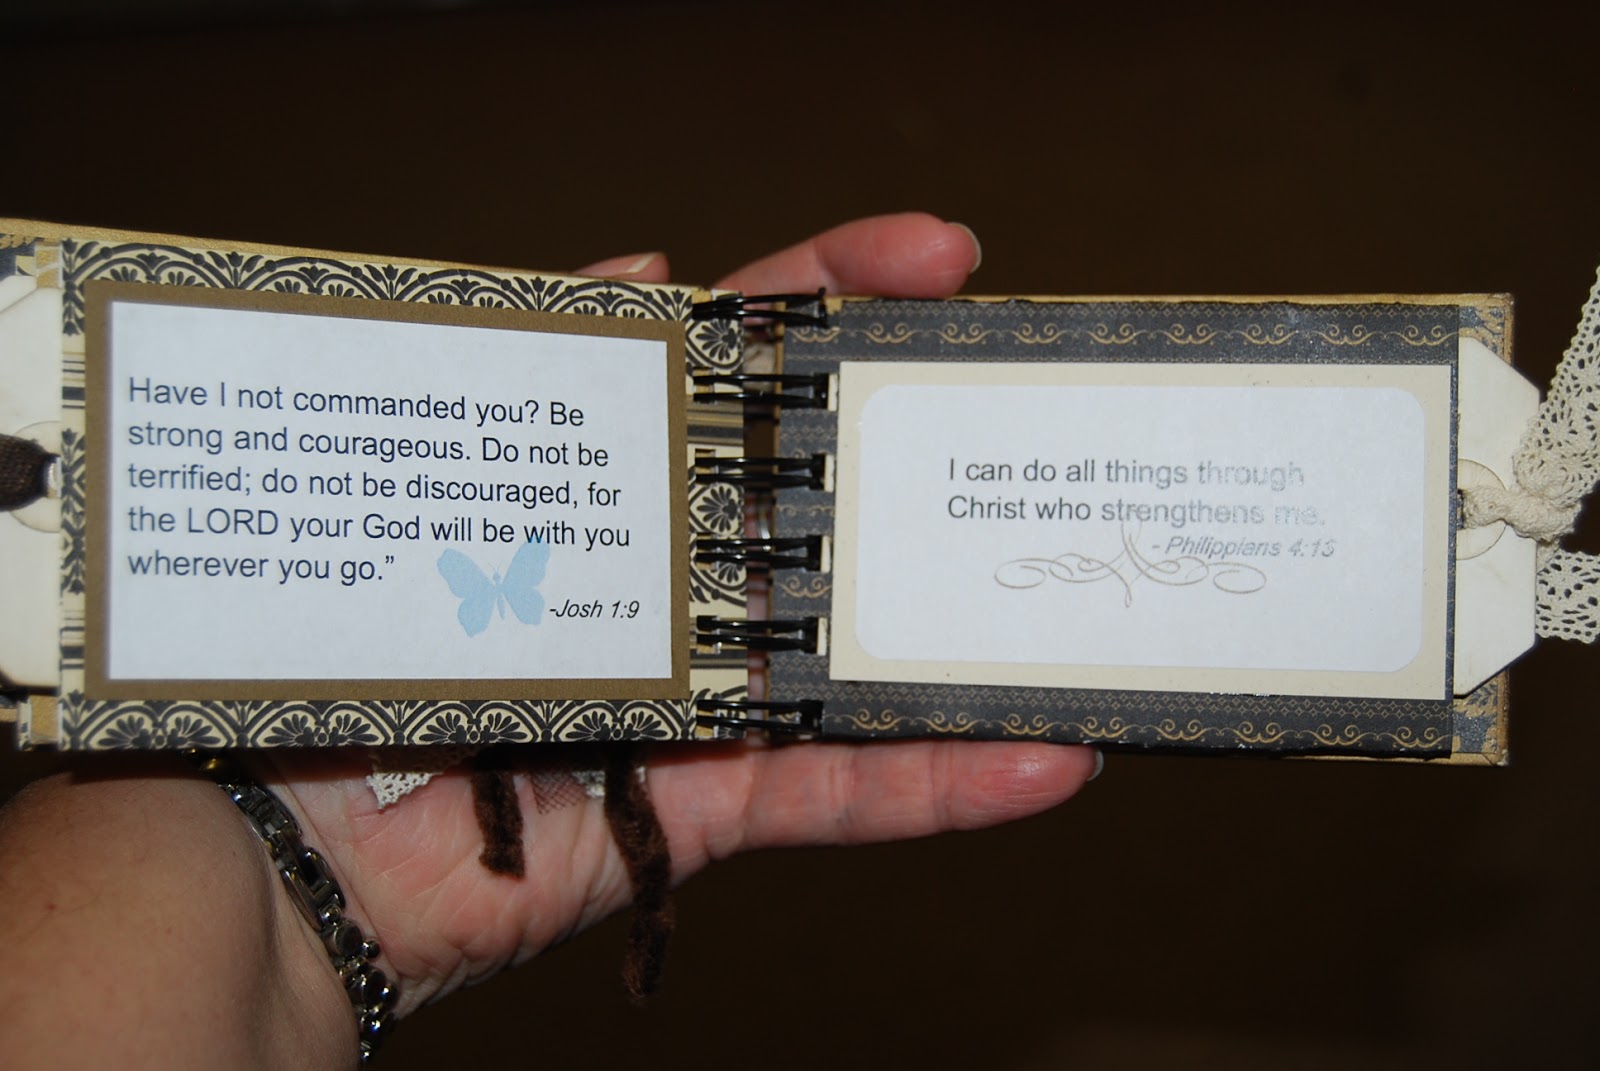 Have I not commanded you? Be
strong and courageous. Do not be
terrified; do not be discouraged, for
the LORD your God will be with you
wherever you go.”
-Josh 1:9
I can do all things through
Christ who strengthens me.
- Philippians 4:13